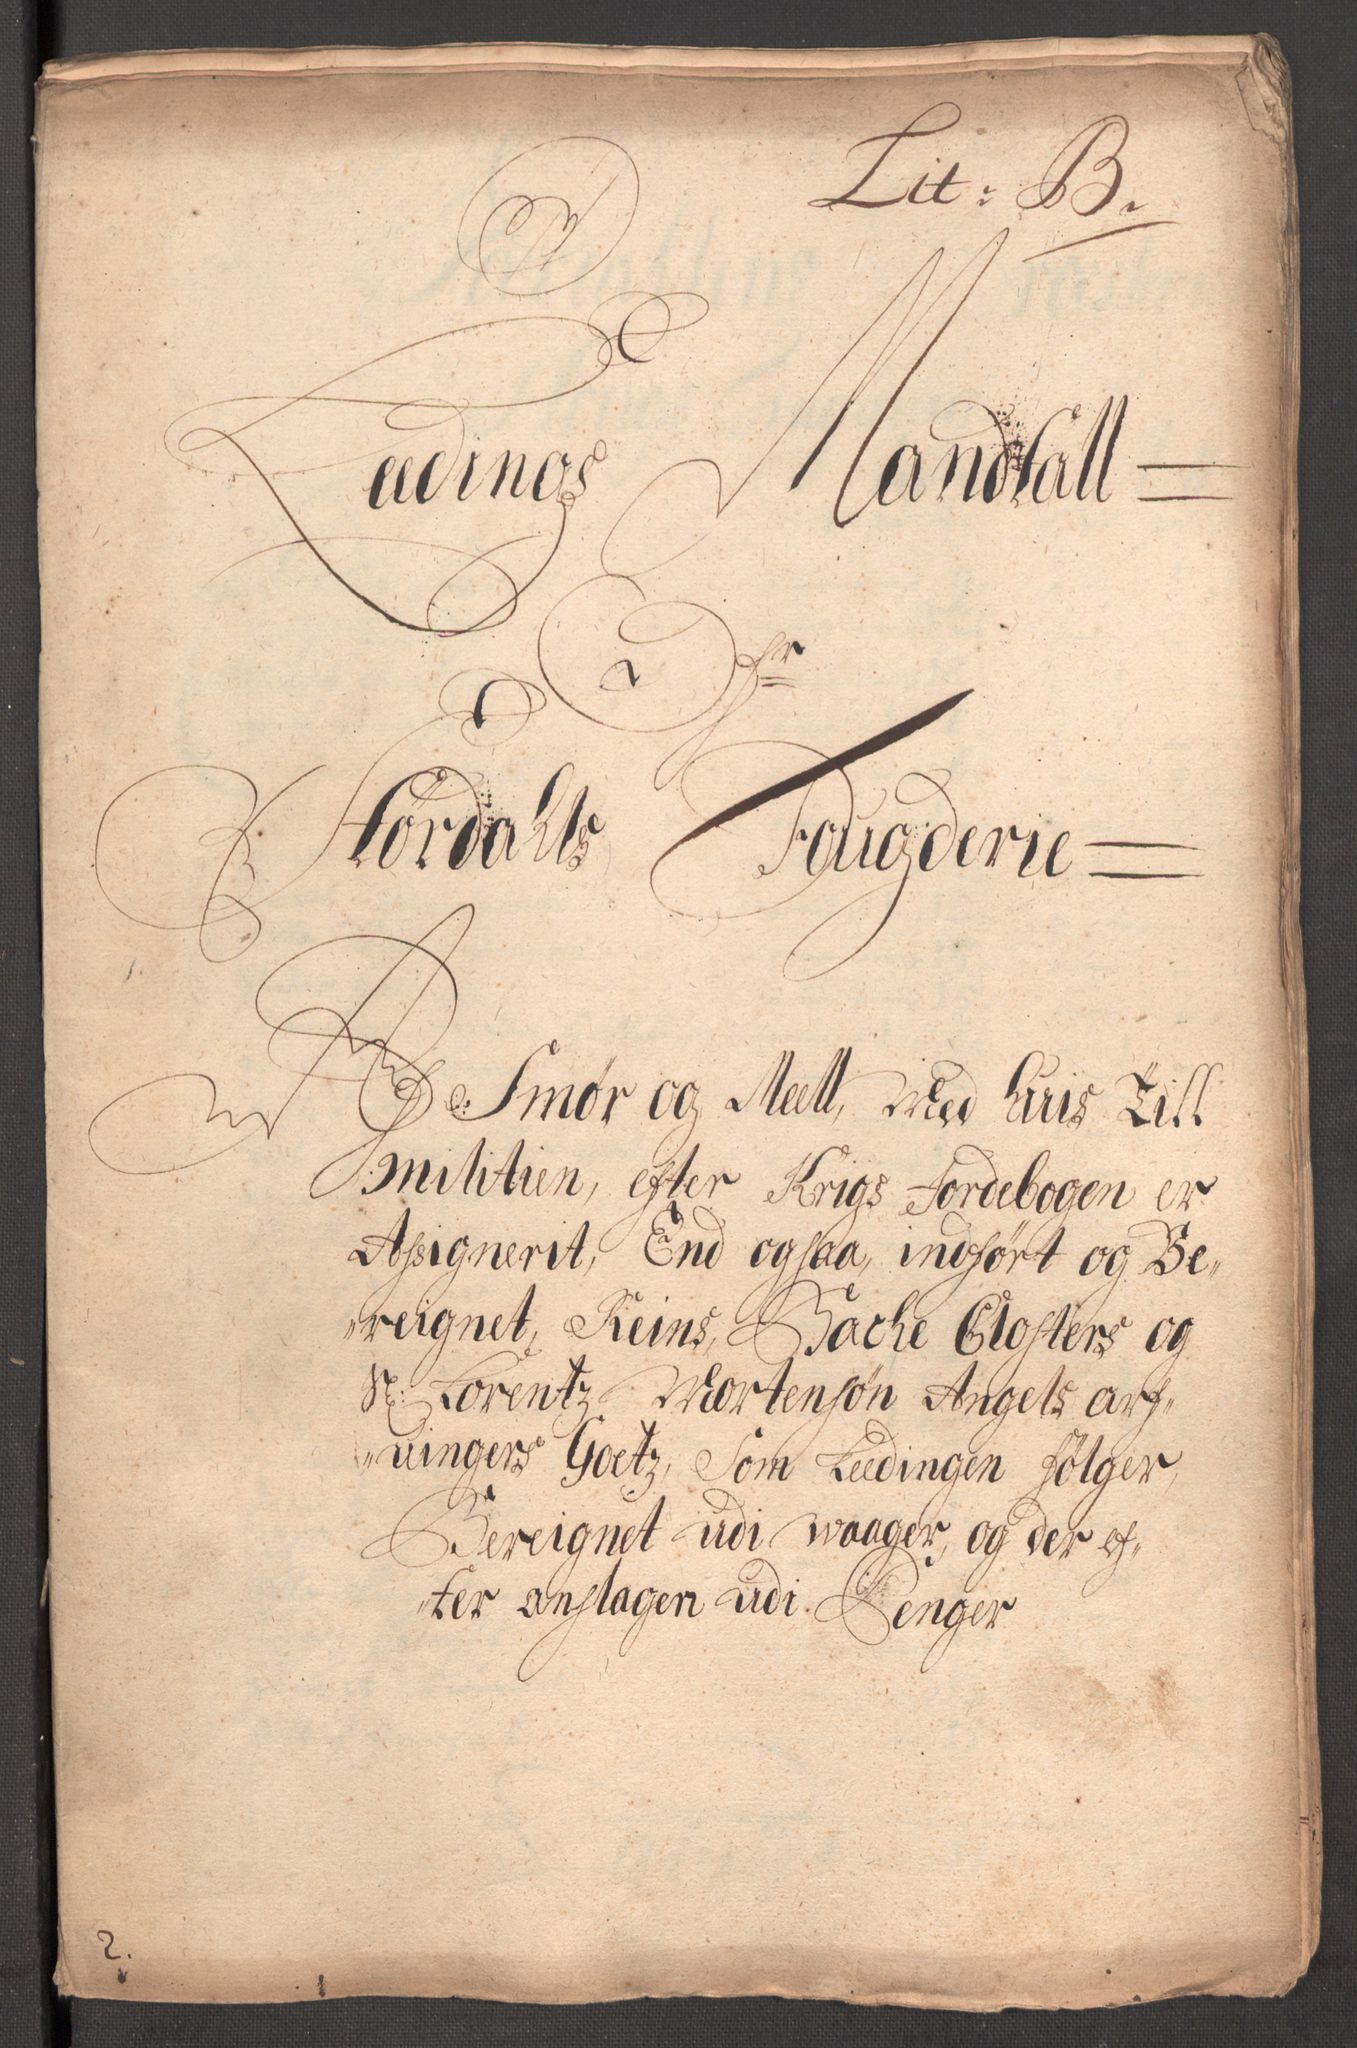 Lit: B.
Leedings Mandtall
for
Størdalls Fougderie
Smør og Meell, Med huis Till
militien, efter Krigs Jordebogen er
Assignerit, End ogsaa, indført og Be„
„reignet, Reins, Bache Closters og
Sl: Lorentz Mortensøn Angels arf„
„uingers Goetz, Som Leedingen følger,
Bereignet udi waager, og der ef„
„ter anslagen udi Penger
2.